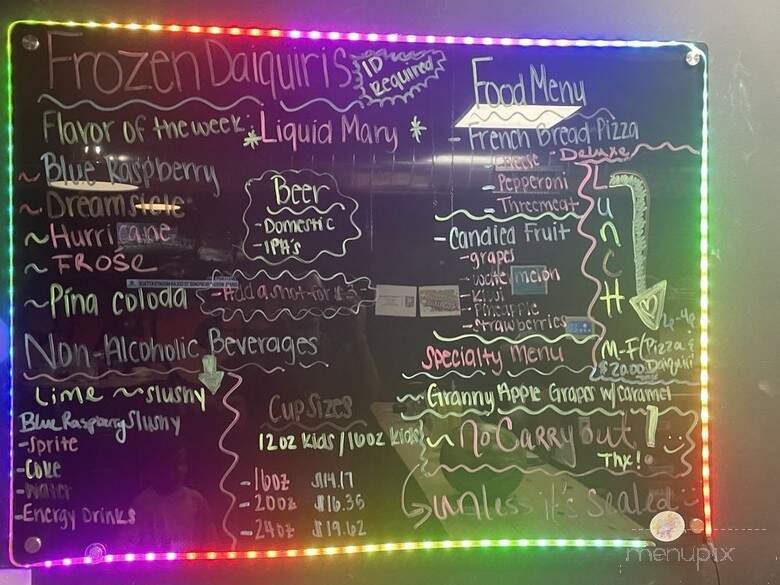 Frozen Daiquiris
ID Required
Flavor of the week: *Liquid Mary *
~ Blue Raspberry
~ Dreamsicle
~ Hurricane
~ FROSE
~ Pina coloda
Beer
- Domestic
- IPA's
- Add a shot for $3
Non-Alcoholic Beverages
Lime ~ slushy
Blue Raspberry Slushy
- Sprite
- Coke
- Water
- Energy Drinks
Cup Sizes
12oz Kids / 16oz Kids
- 16oz $14.17
- 20oz $16.35
- 24oz $19.62
Food Menu
- French Bread Pizza
- Cheese
- Pepperoni
- Threemeat
- Candied Fruit
- grapes
- water melon
- Kiwi
- Pineapple
- Strawberries
Deluxe
LuncH
2p-4p
M-F (Pizza &
$20.00 Daiquiri
Specialty Menu
~ Granny Apple Grapes w/caramel
~ No Carry out !
Thx!
unless it's sealed
menupix